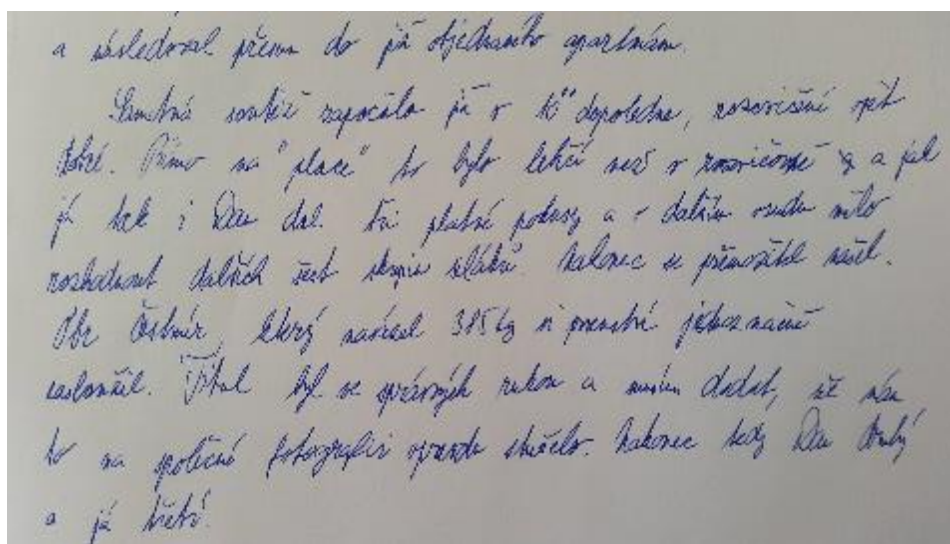 a následoval přesun do již objednaného apartmánu.
Samotná soutěž započala již v 10⁰⁰ dopoledne, rozcvičení opět
dobré. Přímo na "place" to bylo lehčí než v rozcvičovně a jak
já tak i Dan dal tři platné pokusy a o dalším osudu mělo
rozhodnout dalších šest skupin siláků. Nakonec se přemožitel našel.
Obr Čestmír, který navzpíral 385 kg si prvenství jednoznačně
zasloužil. Titul byl ve správných rukou a musím dodat, že nám
to na společné fotografii opravdu slušelo. Nakonec tedy Dan druhý
a já třetí.